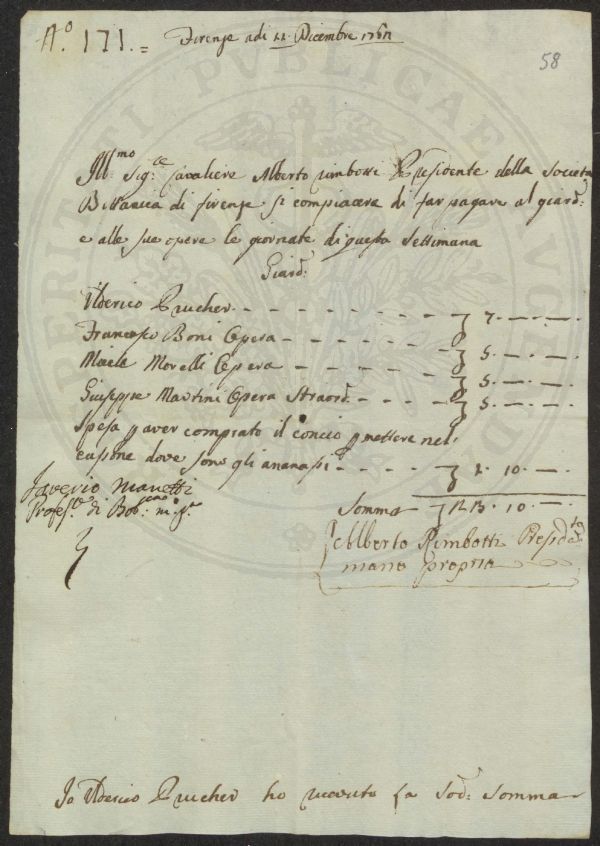 N.º 171.=
Firenze adi 11 Dicembre 1767
58
Ill:mo Sig:re Cavaliere Alberto Rimbotti Presidente della Società
Bottanica di firenze si compiacerà di far pagare al giard:
e alle sue opere le giornate di questa Settimana
Giard:
Ulderico Prucher - - - - - - - - - 7. — . —
Francesco Boni Opera - - - - - - 5. — . —
Morelli Opera - - - - - - 5. — . —
Giuseppe Martini Opera Straord. - - - - 5. — . —
Spesa p aver comprato il concio p mettere nel
casone dove sono gli ananassi - - - - 1. 10. —
Saverio Manetti
Profess:re di Bot:
Somma 10. —
Alberto Rimbotti Presid:te
mano propria
Io Ulderico Prucher ho ricevuto la Sod: Somma